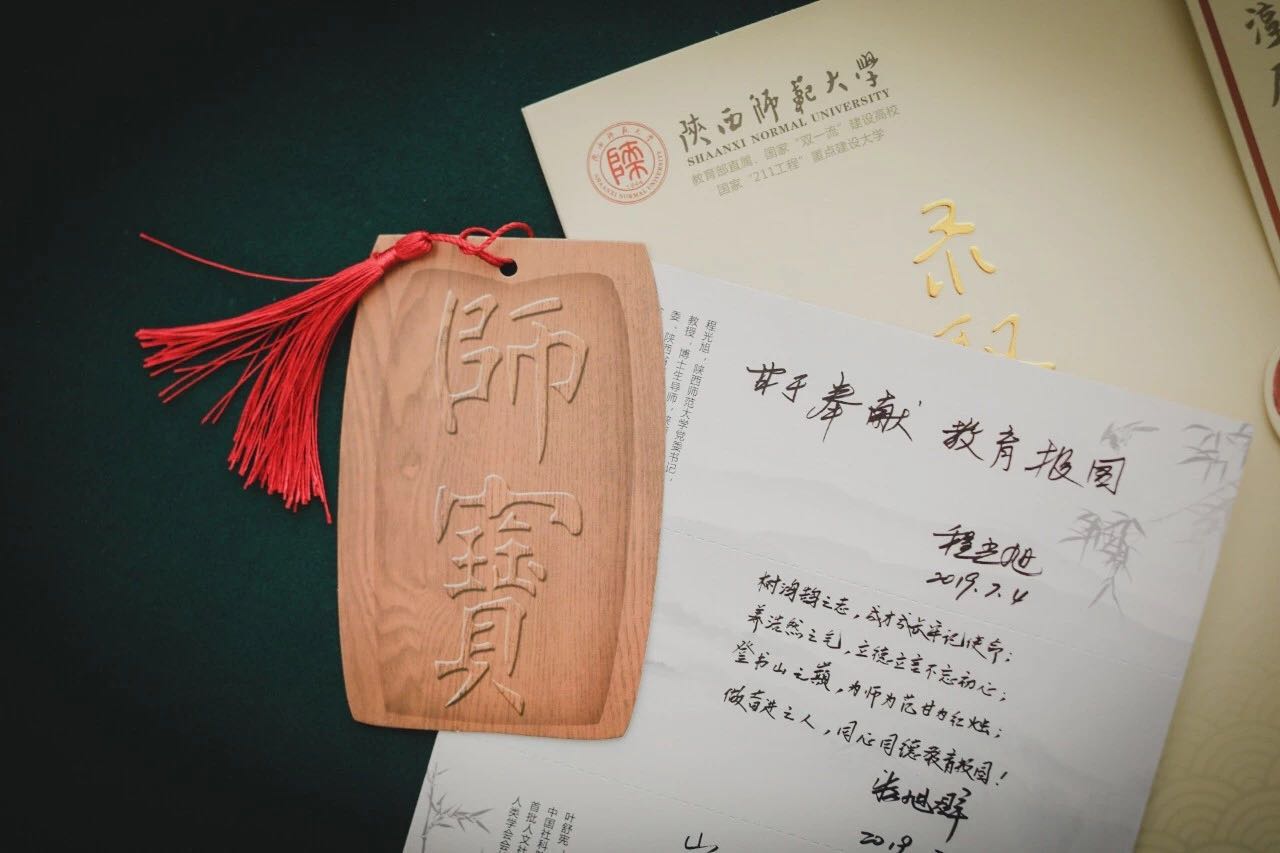 陝西師範大學
SHAANXI NORMAL UNIVERSITY
教育部直属、国家“双一流”建设高校
国家“211工程”重点建设大学
SHAANXI NORMAL UNIVERSITY
師寶
程光旭,陕西师范大学党委书记,
教授,博士生导师,陕
委,陕西省
甘于奉献 教育报国
程光旭
2019.7.4
树鸿鹄之志,成才成长牢记使命;
养浩然之气,立德立言不忘初心;
登书山之巅,为师为范甘为红烛;
做奋进之人,同心同德教育报国!
2019
叶舒宪,
中国社科
首批人文社
人类学会会
山